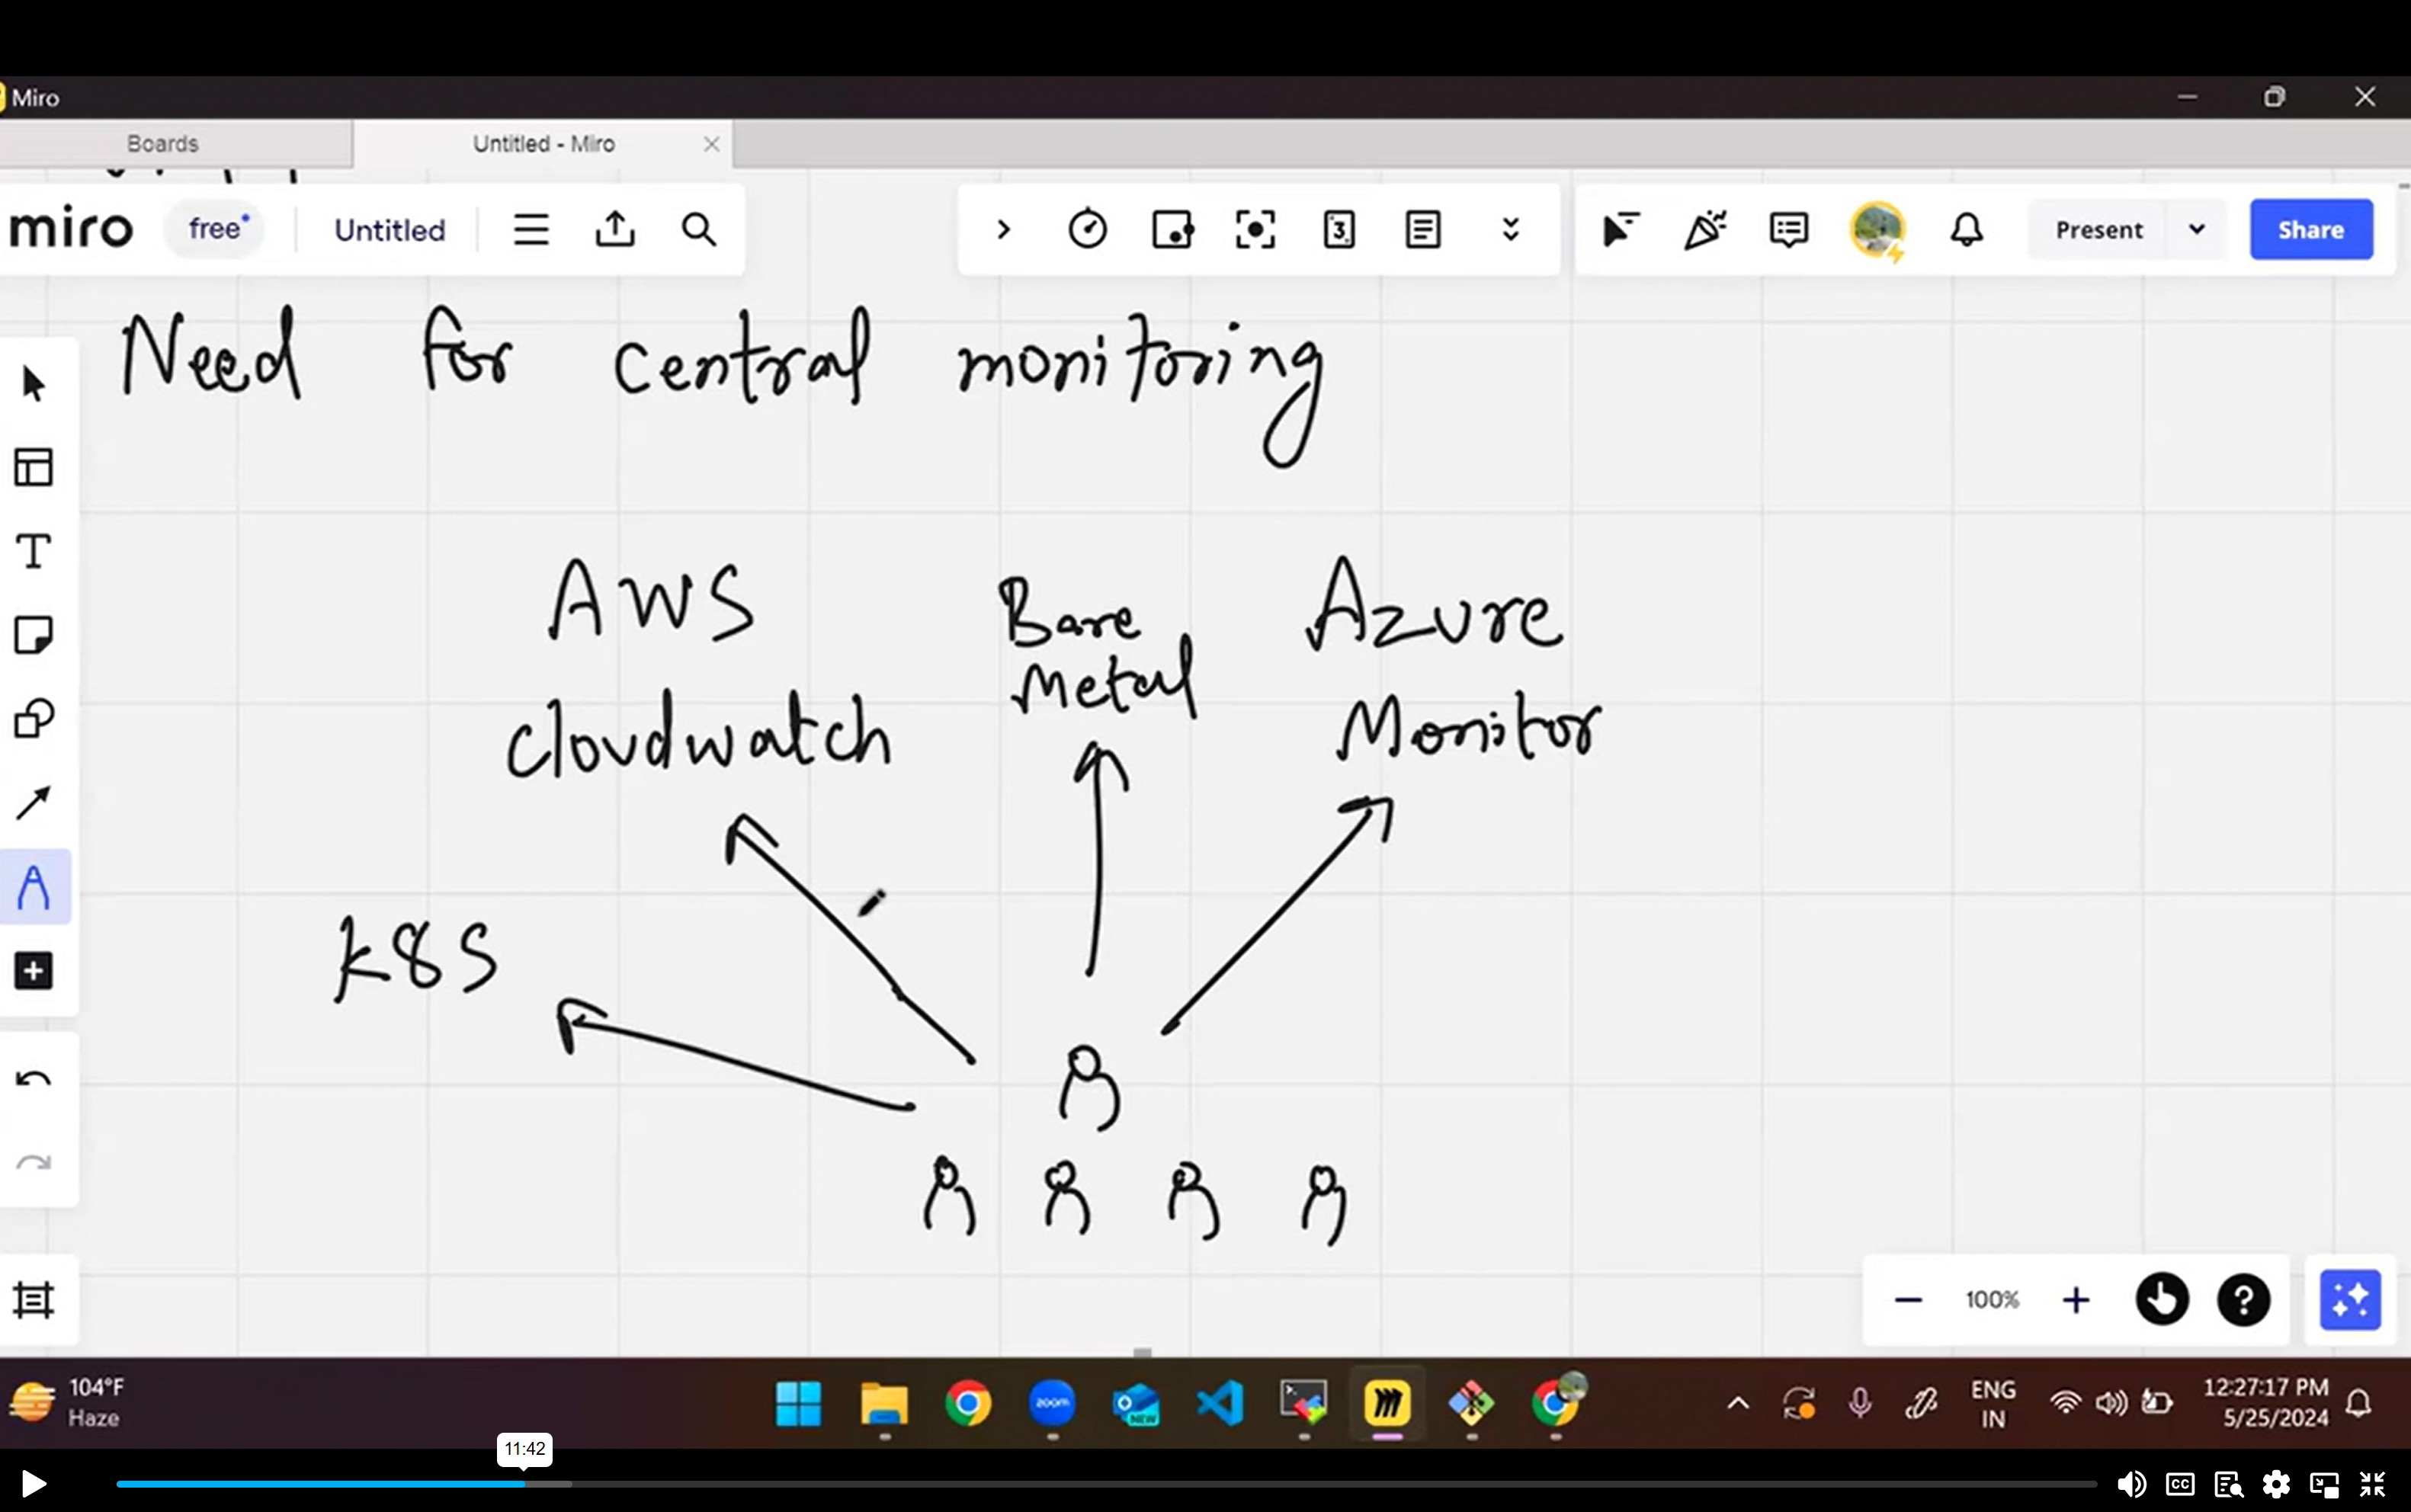 Miro
Boards
Untitled - Miro
miro
free
Untitled
3
Present
Share
Need for central monitoring
AWS
Bare
Azure
Metal
Cloudwatch
Monitor
K8S
100%
104°F
Haze
zoom
NEW
ENG
IN
12:27:17 PM
5/25/2024
11:42
CC